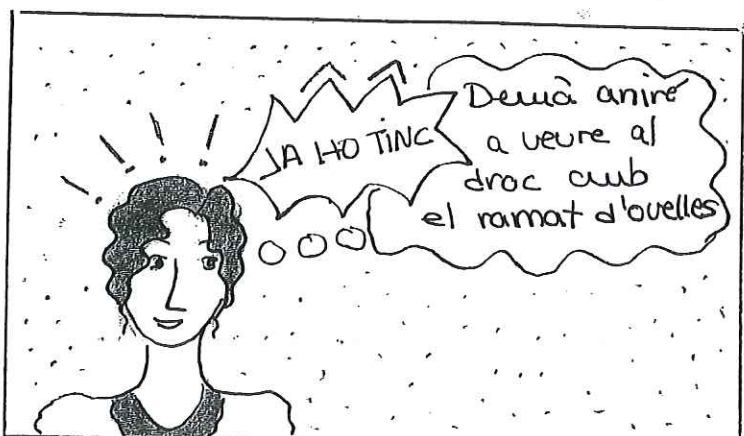 JA HO TINC
Demà aniré
a veure al
droc amb
el ramat d'ovelles